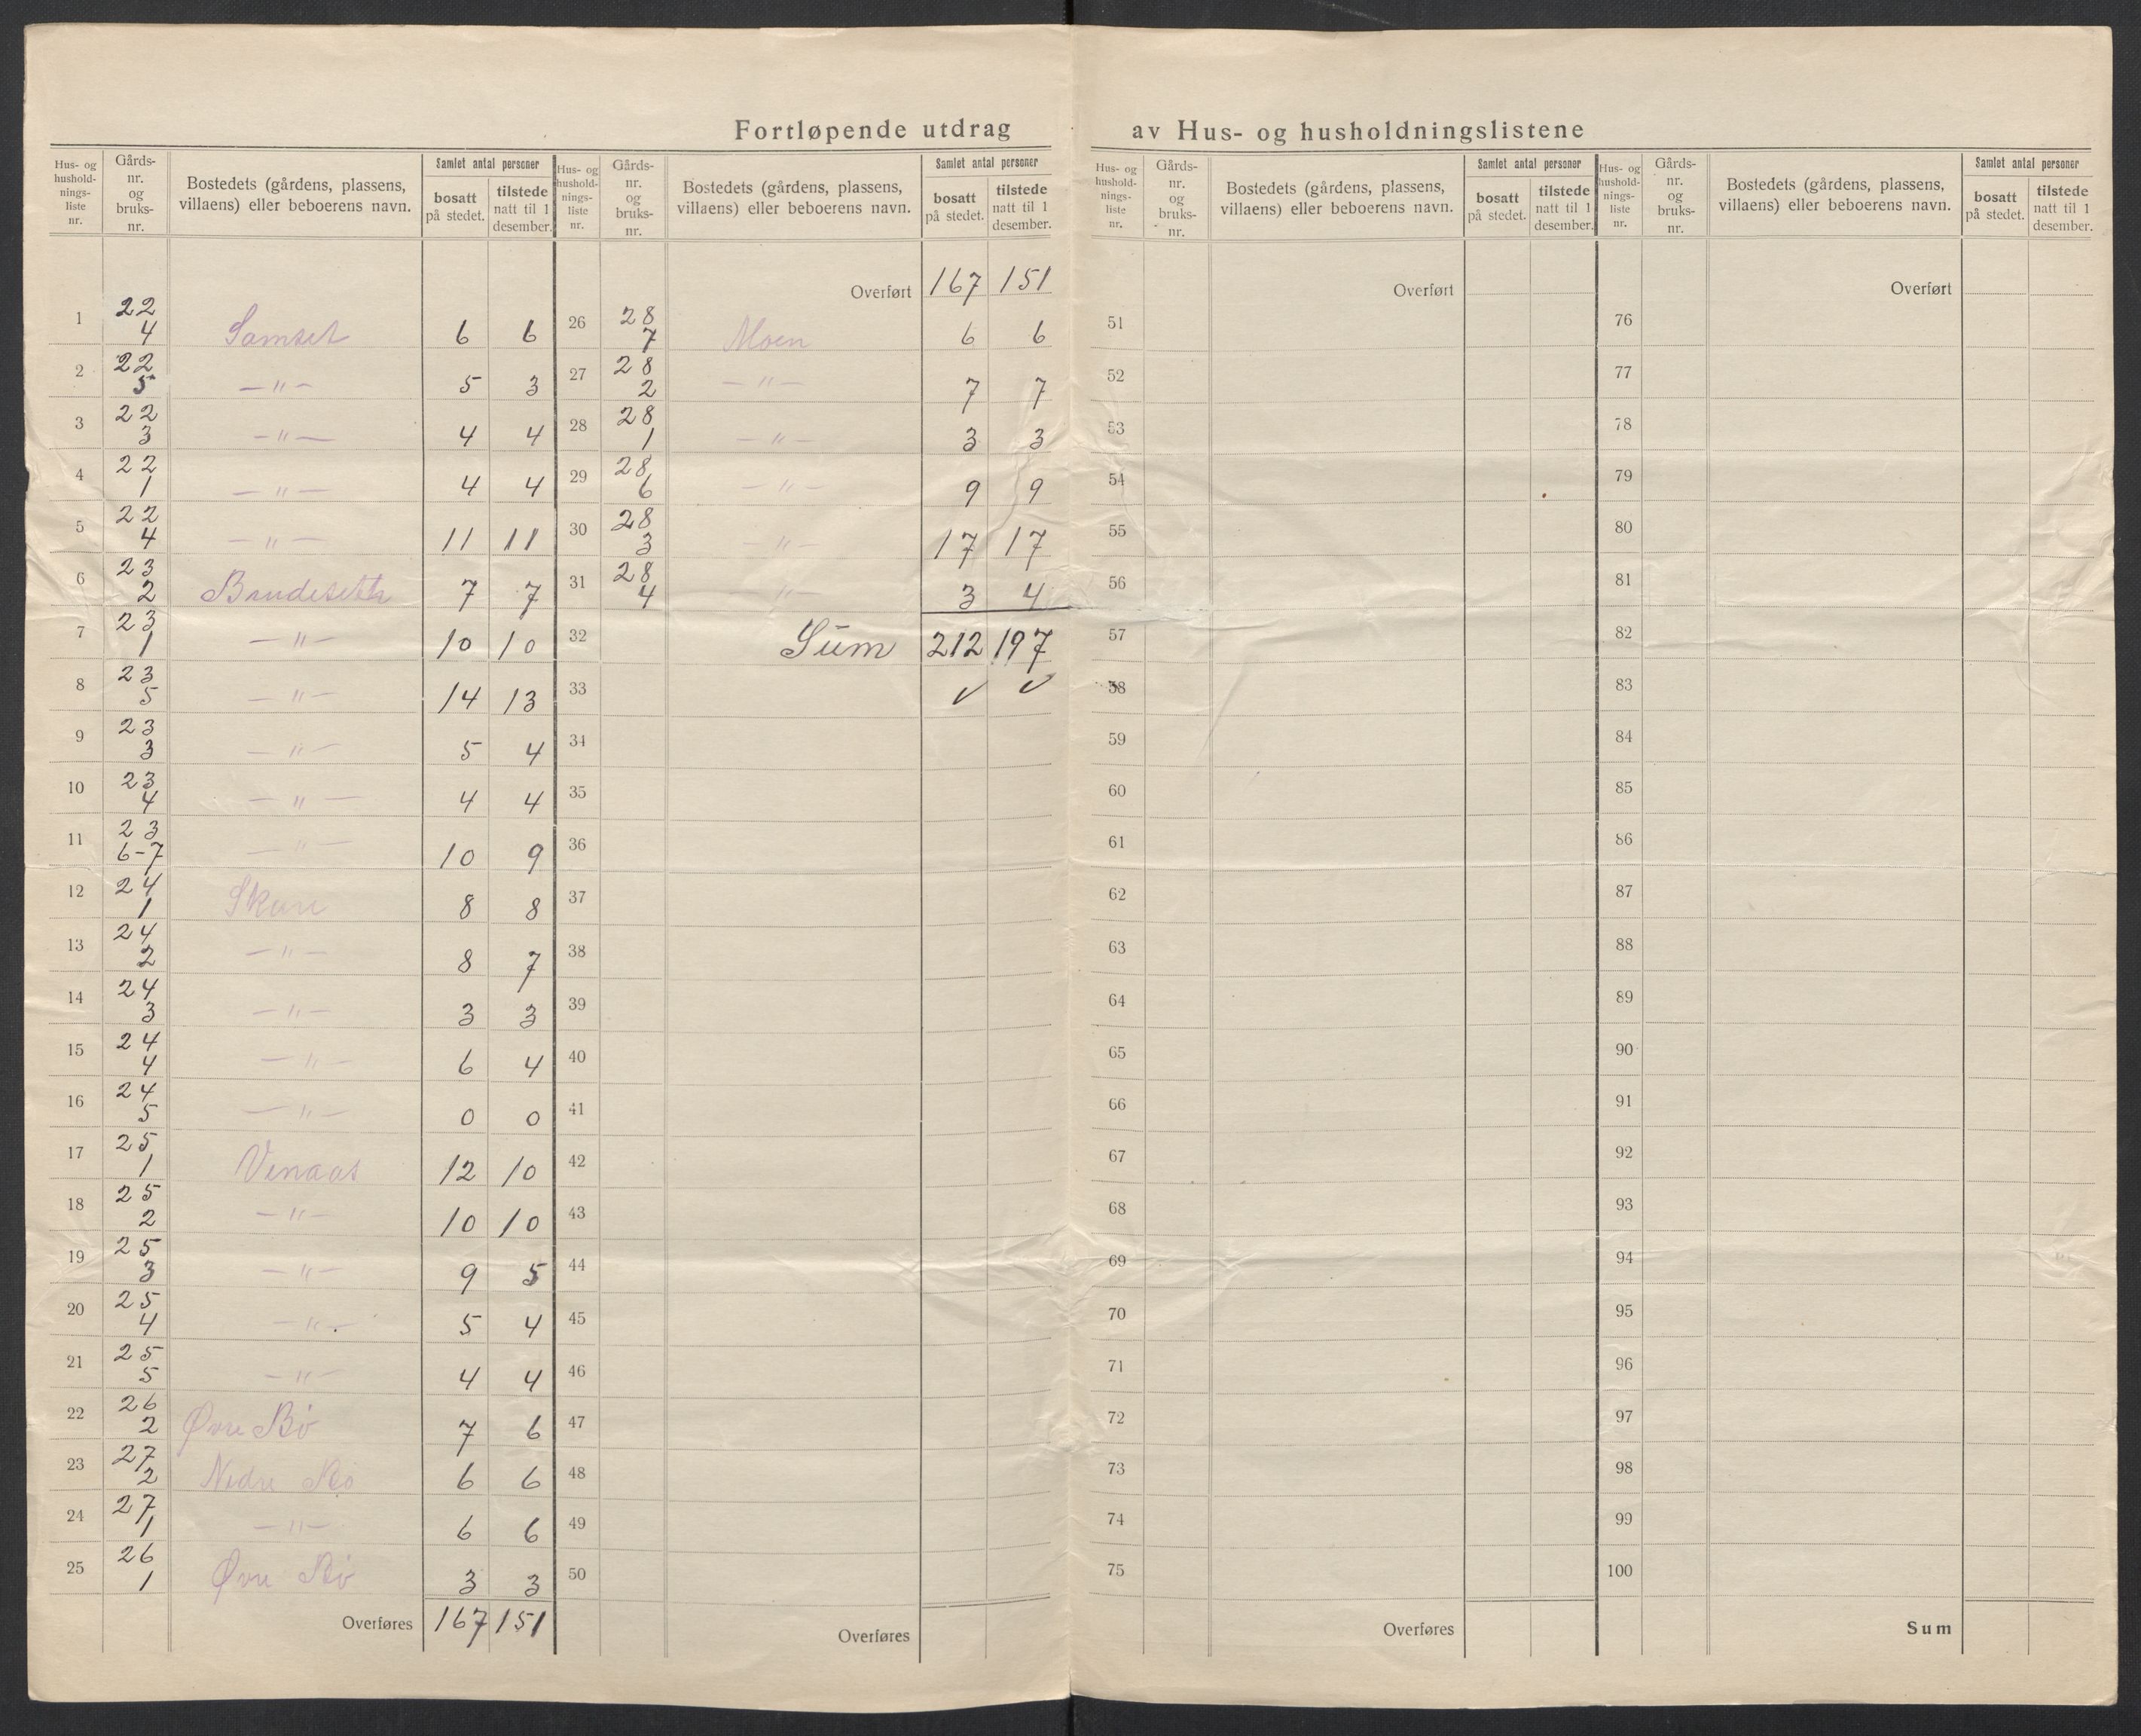 Fortløpende utdrag av Hus- og husholdningslistene
Hus- og hushold-nings-liste nr. | Gårds-nr. og bruks-nr. | Bostedets (gårdens, plassens, villaens) eller beboerens navn. | Samlet antal personer | bosatt på stedet. | tilstede natt til 1 desember.
1 | 22 4 | Samset | 6 | 6
2 | 22 5 | —"— | 5 | 3
3 | 22 3 | —"— | 4 | 4
4 | 22 1 | —"— | 4 | 4
5 | 22 4 | —"— | 11 | 11
6 | 23 2 | | 7 | 7
7 | 23 1 | —"— | 10 | 10
8 | 23 5 | —"— | 14 | 13
9 | 23 3 | —"— | 5 | 4
10 | 23 4 | —"— | 4 | 4
11 | 23 6-7 | —"— | 10 | 9
12 | 24 1 | Skare | 8 | 8
13 | 24 2 | —"— | 8 | 7
14 | 24 3 | —"— | 3 | 3
15 | 24 4 | —"— | 6 | 4
16 | 24 5 | —"— | 0 | 0
17 | 25 1 | Venaas | 12 | 10
18 | 25 2 | —"— | 10 | 10
19 | 25 3 | —"— | 9 | 5
20 | 25 4 | —"— | 5 | 4
21 | 25 5 | —"— | 4 | 4
22 | 26 2 | Øvre Bö | 7 | 6
23 | 27 2 | Nedre Bö | 6 | 6
24 | 27 1 | —"— | 6 | 6
25 | 26 1 | Øvre Bö | 3 | 3
Overføres | 167 | 151
Hus- og hushold-nings-liste nr. | Gårds-nr. og bruks-nr. | Bostedets (gårdens, plassens, villaens) eller beboerens navn. | Samlet antal personer | bosatt på stedet. | tilstede natt til 1 desember.
Overført | 167 | 151
26 | 28 7 | Moen | 6 | 6
27 | 28 2 | —"— | 7 | 7
28 | 28 1 | —"— | 3 | 3
29 | 28 6 | —"— | 9 | 9
30 | 28 3 | —"— | 17 | 17
31 | 28 4 | " | 3 | 4
32 | Sum | 212 | 197
33 | ✓ | ✓
34
35
36
37
38
39
40
41
42
43
44
45
46
47
48
49
50
Overføres
Hus- og hushold-nings-liste nr. | Gårds-nr. og bruks-nr. | Bostedets (gårdens, plassens, villaens) eller beboerens navn. | Samlet antal personer | bosatt på stedet. | tilstede natt til 1 desember.
Overført
51
52
53
54
55
56
57
58
59
60
61
62
63
64
65
66
67
68
69
70
71
72
73
74
75
Overføres
Hus- og hushold-nings-liste nr. | Gårds-nr. og bruks-nr. | Bostedets (gårdens, plassens, villaens) eller beboerens navn. | Samlet antal personer | bosatt på stedet. | tilstede natt til 1 desember.
Overført
76
77
78
79
80
81
82
83
84
85
86
87
88
89
90
91
92
93
94
95
96
97
98
99
100
Sum